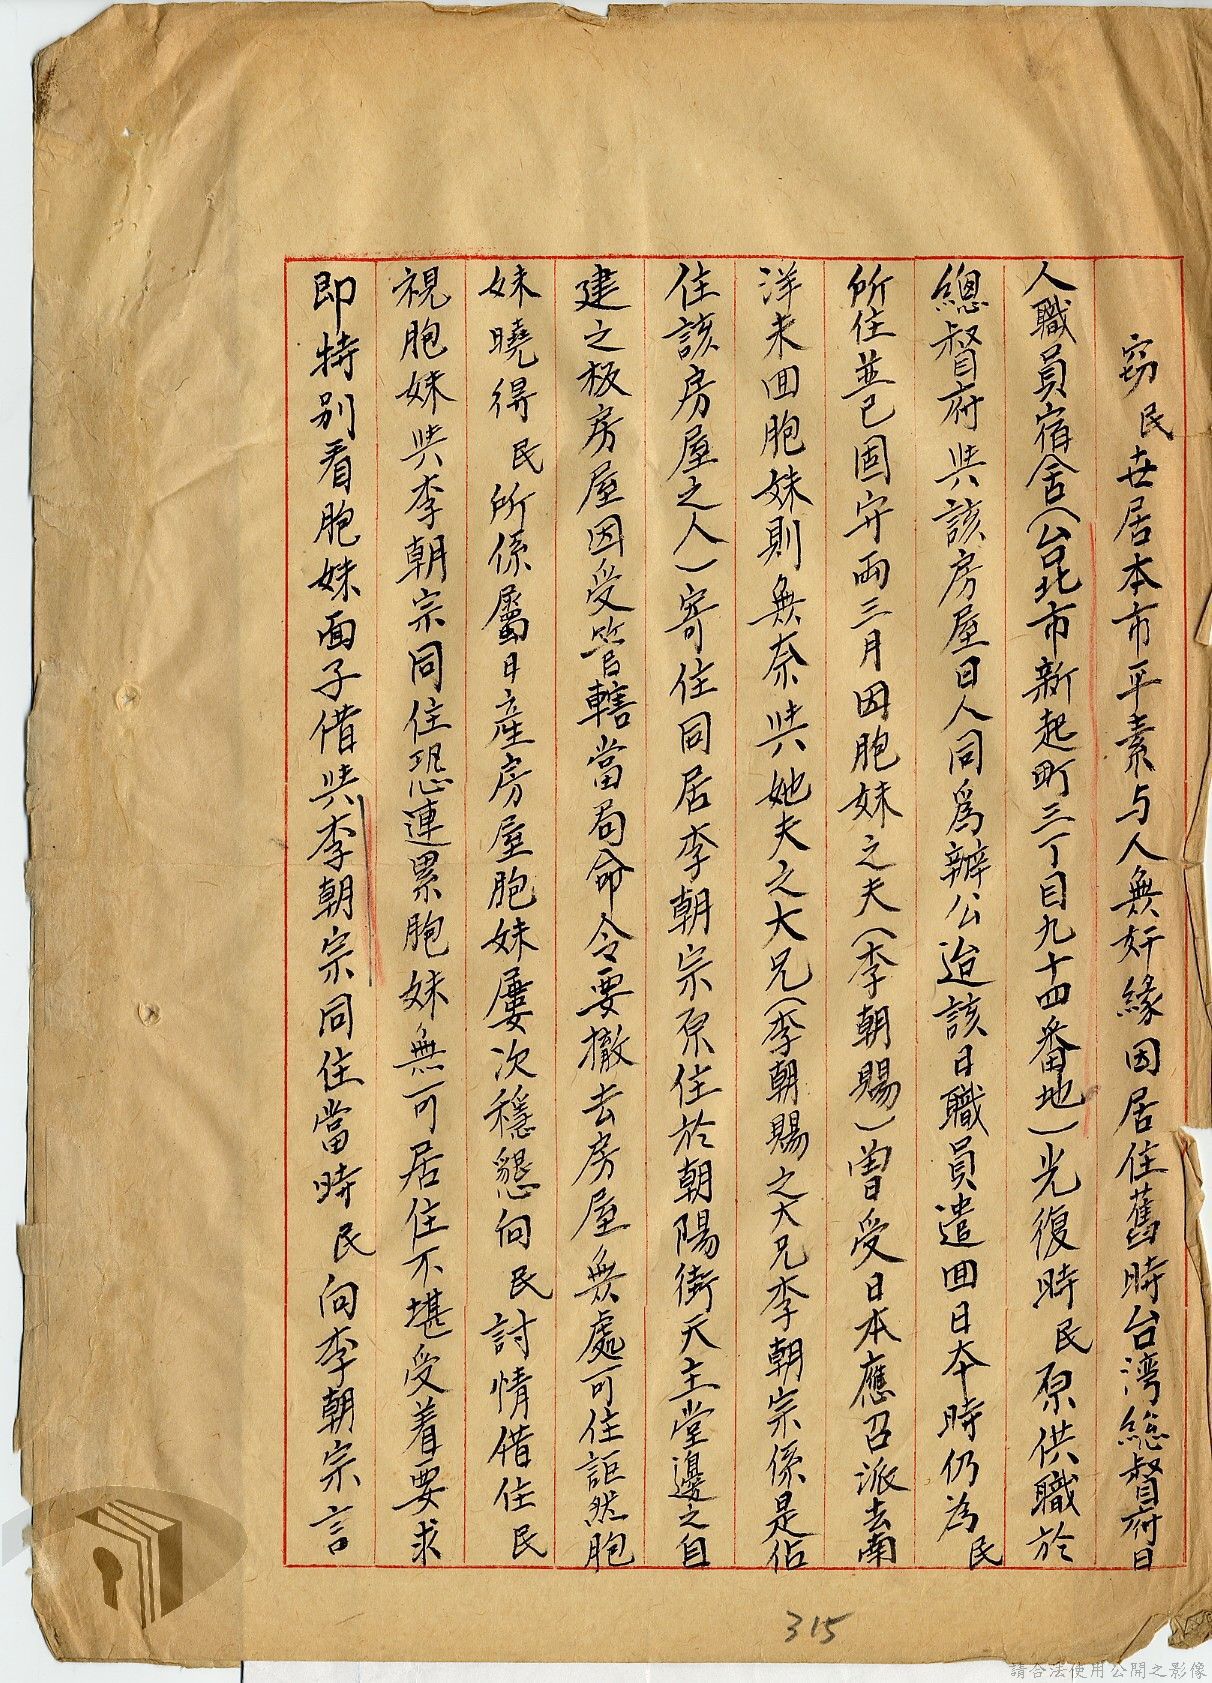 窃民世居本市平素与人無奸緣因居住舊時台湾総督府日
人職員宿舍(台北市新起町三丁目九十四番地)光復時民原供職於
總督府與該房屋日人同爲辦公迨該日職員遣囬日本時仍為民
所住並已固守兩三月因胞妹之夫(李朝賜)曽受日本應召派去南
洋未囬胞妹則無奈與她夫之大兄(李朝賜之大兄李朝宗係是佔
住該房屋之人)寄住同居李朝宗原住於朝陽街天主堂邊之自
建之板房屋因受管轄當局命令要撤去房屋無處可住詎然胞
妹曉得民所係屬日產房屋胞妹屢次穩懇向民討情借住民
視胞妹與李朝宗同住恐連累胞妹無可居住不堪受着要求
即特别看胞妹面子借與李朝宗同住當時民向李朝宗言
315
請合法使用公開之影像